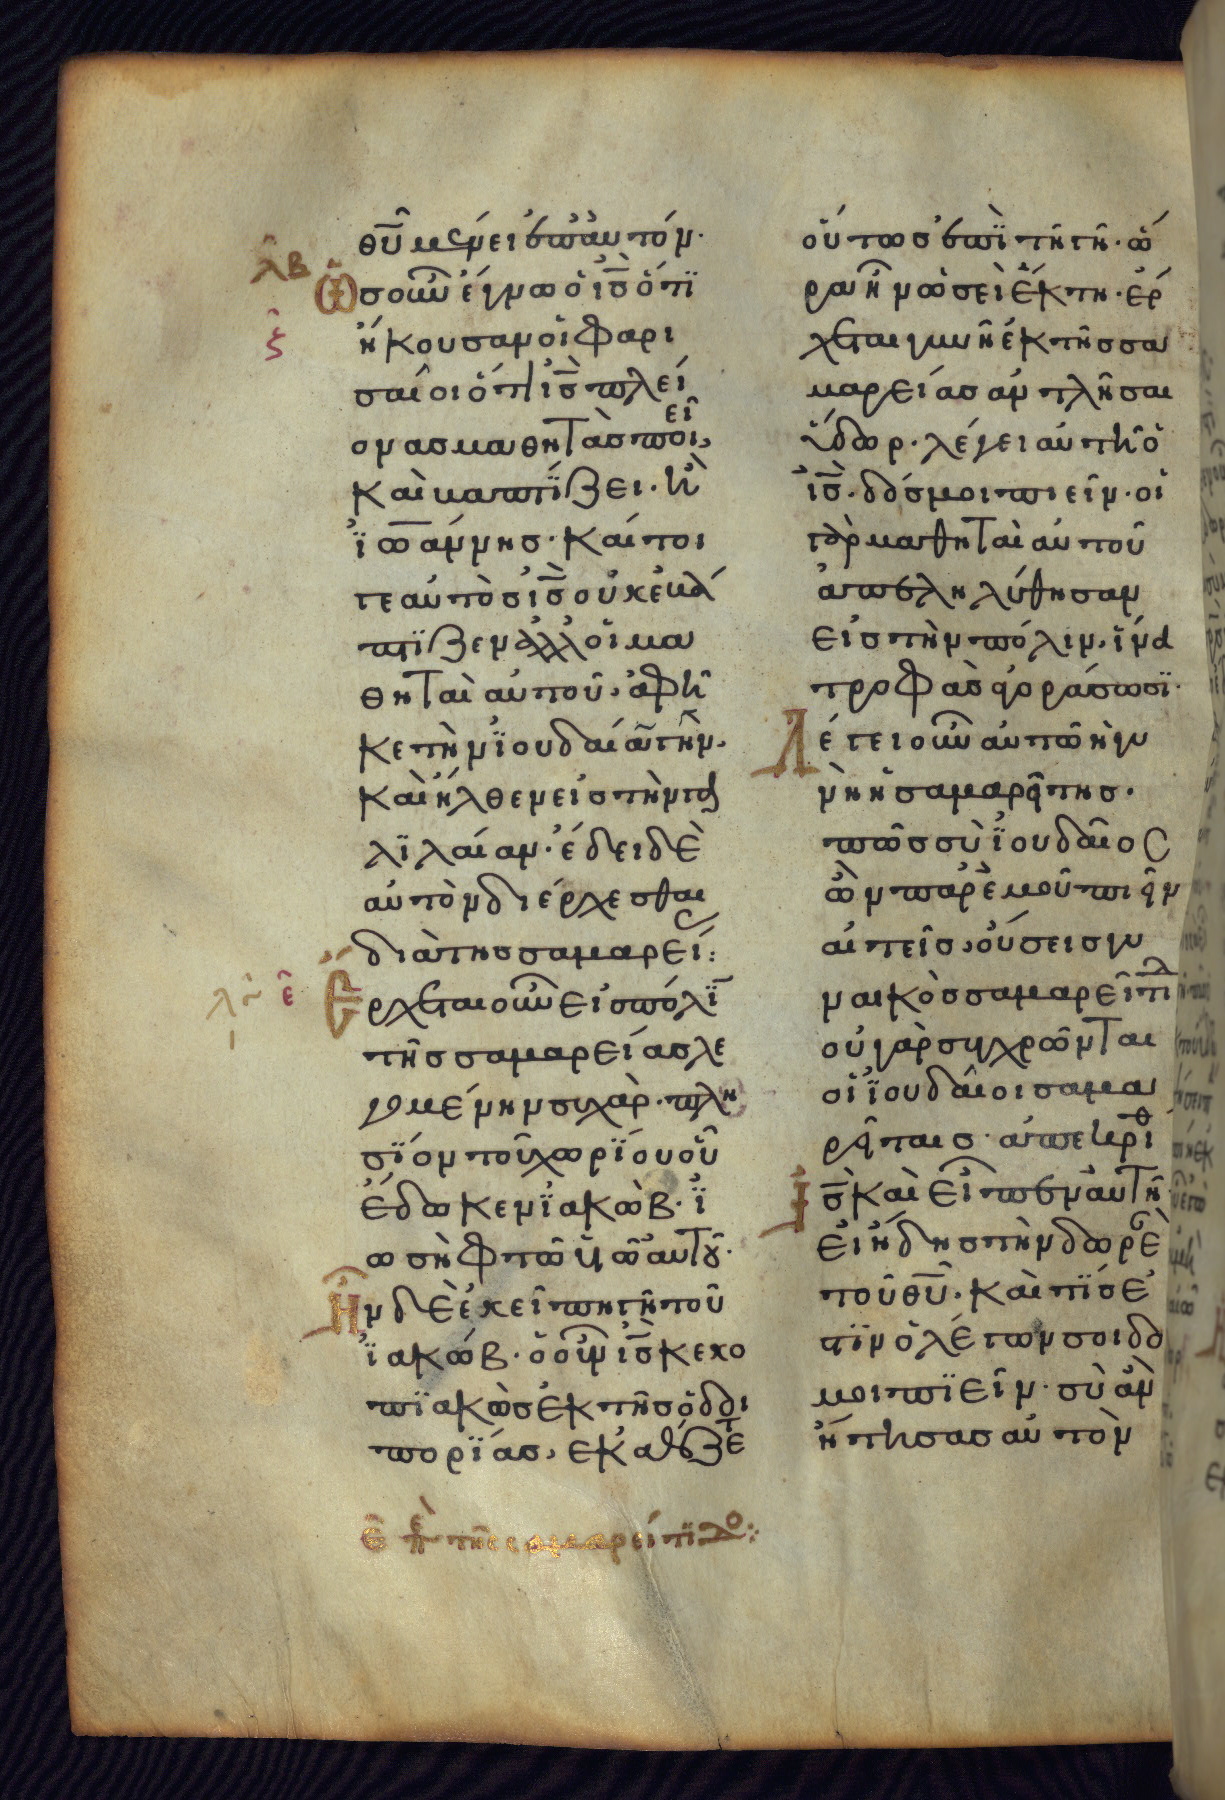 θῡ μένει ἐπ αὐτόν·
λβ
Ὡσ οὖν ἔγνω ὁ ἰ̅σ̅ ὅτι
ξ
ἤκουσαν οἱ φαρι
σαῖοι ὅτι ἰ̅σ̅ πλεί
ονασ μαθητὰσ ποιεῖ,
καὶ βαπτίζει· ἢ
ἰωάννησ· καίτοι
γε αὐτὸσ ἰ̅σ̅ οὐκ ἐβά
πτιζεν ἀλλ οἱ μα
θηταὶ αὐτοῦ, ἀφῆ
κε τὴν ἰουδαίαν γῆν·
καὶ ἦλθεν εἰσ τὴν γα
λιλαίαν· ἔδει δὲ
αὐτὸν διέρχεσθαι
διὰ τησ σαμαρεί:
λγ
ε
Ἔρχεται οὖν εἰσ πόλῑ
τῆσ σαμαρείασ λε
γομένην συχὰρ· πλη
σίον τοῦ χωρίου οὗ
ἔδωκεν ἰακὼβ· ἰ
ωσὴφ τῶ υἱῶ αυτοῦ·
Ἦν δὲ ἐκεῖ πηγὴ τοῦ
ἰακώβ· ὁ οὖν ἰ̅σ̅ κεκο
πιακὼσ ἐκ τῆσ ὁδοι
πορίασ, ἐκαθέζετ
ε̅ περὶ τῆσ σαμαρείτιδο:
οὕτωσ ἐπὶ τῆ γῆ· ὥ
ρα ἦν ὡσεὶ ἕκτη· ἔρ
χεται γυνὴ ἐκ τῆσ σα
μαρείασ ἀντλῆσαι
ὕδωρ· λέγει αὐτῆ ὁ
ἰ̅σ̅· δόσ μοι πιεῖν· οἱ
γὰρ μαθηταὶ αὐτοῦ
ἀπεληλύθησαν
εἰσ τὴν πόλιν, ἵνα
τροφὰσ ἀγοράσωσι·
Λέγει οὖν αὐτῶ ἡ γυ
νὴ ἡ σαμαρεῖτησ·
πῶσ σὺ ἰουδαῖοσ
ὢν παρ ἐμοῦ πιεῖν
αιτεῖσ, οὔσεισ γυ
ναικὸσ σαμαρείτιδ
οὐ γὰρ συγχρῶνται
οἱ ἰουδαῖοι σαμα
ρείταισ· ἀπεκρίθ
ἰ̅σ̅ καὶ εἶπεν αὐτῆ·
εἰ ἤδησ τὴν δωρεὰ
τοῦ θῡ· καὶ τίσ ἐ
τιν ὁ λέγων σοι δό
μοι πιεῖν· σὺ ἂν
ἤτησασ αὐτὸν